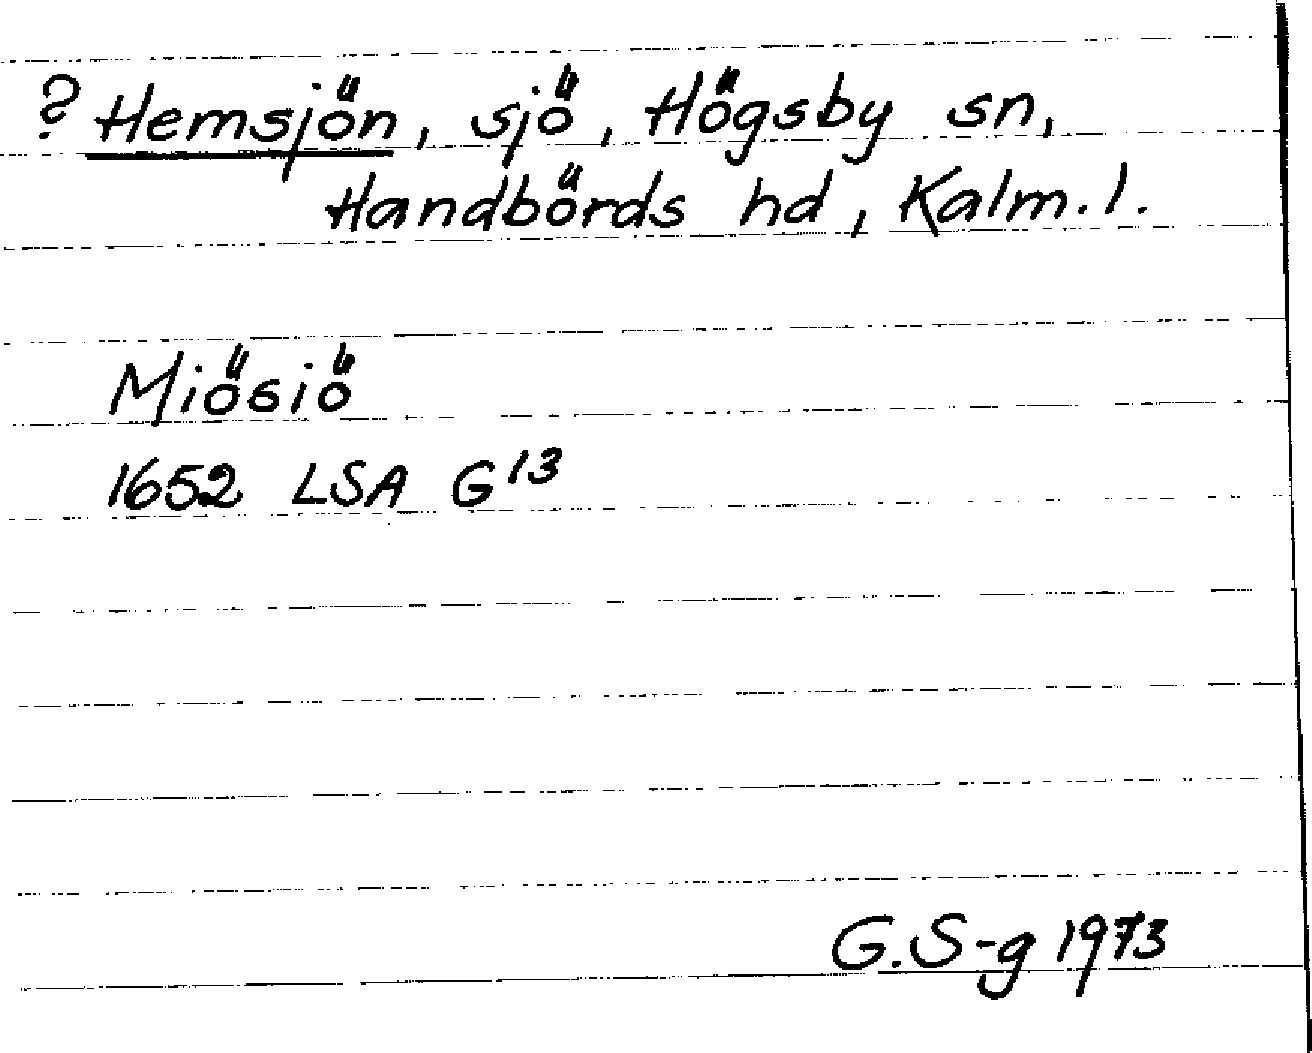 ? Hemsjön, sjö, Högsby sn,
Handbörds hd, Kalm. l.
Miösiö
1652 LSA G¹³
G.S-g 1973